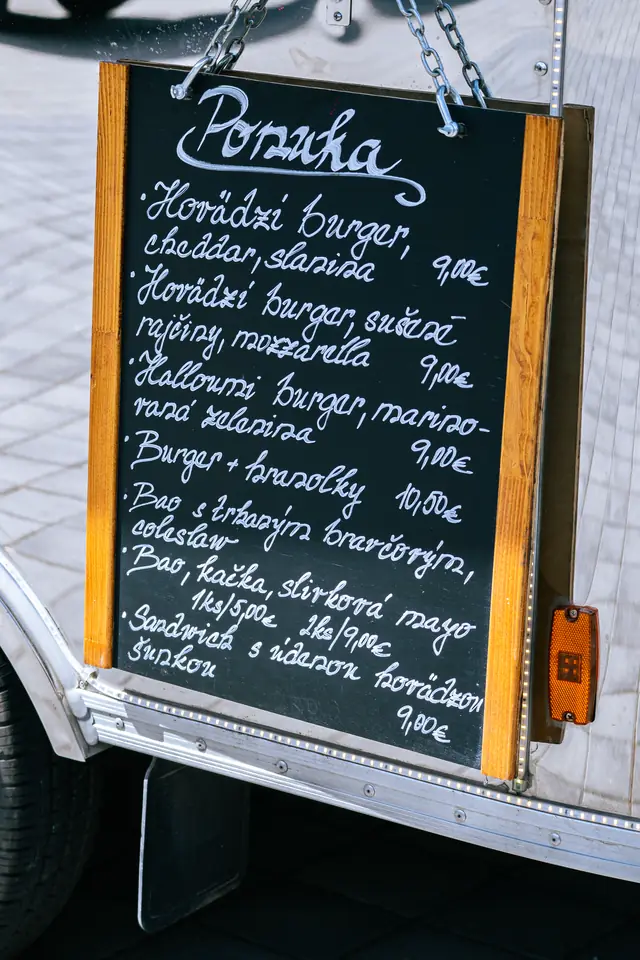 Ponuka
· Hovädzí burger,
cheddar, slanina 9,00€
· Hovädzí burger, sušené
rajčiny, mozzarella 9,00€
· Halloumi burger, marino-
vaná zelenina 9,00€
· Burger + hranolky 10,50€
· Bao s trhaným bravčovým,
coleslaw
· Bao, kačka, slivková mayo
1ks/5,00€ 2ks/9,00€
· Sandwich s údenou hovädzou
šunkou 9,00€